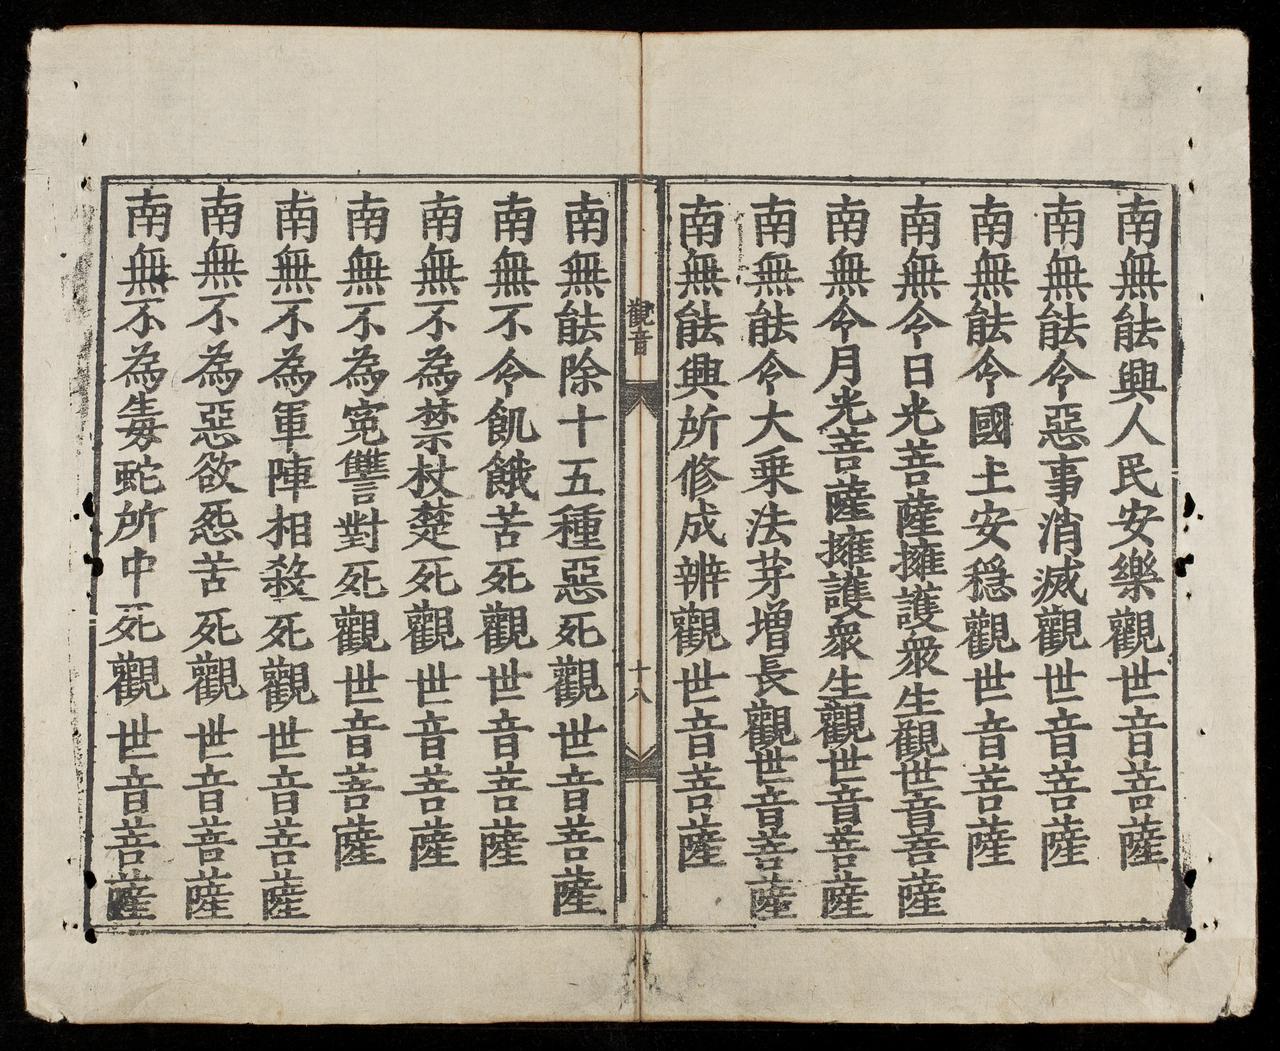 南無能興人民安樂觀世音菩薩
南無能令惡事消滅觀世音菩薩
南無能令國土安穩觀世音菩薩
南無令日光菩薩擁護衆生觀世音菩薩
南無令月光菩薩擁護衆生觀世音菩薩
南無能令大乗法芽增長觀世音菩薩
南無能興所修成辨觀世音菩薩
觀音
十八
南無能除十五種惡死觀世音菩薩
南無不令飢餓苦死觀世音菩薩
南無不為禁杖楚死觀世音菩薩
南無不為寃讐對死觀世音菩薩
南無不為軍陣相殺死觀世音菩薩
南無不為惡欲恶苦死觀世音菩薩
南無不為毒蛇所中死觀世音菩薩